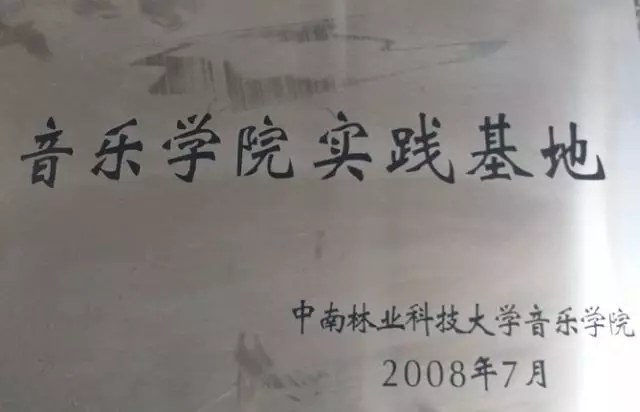 音乐学院实践基地
中南林业科技大学音乐学院
2008年7月